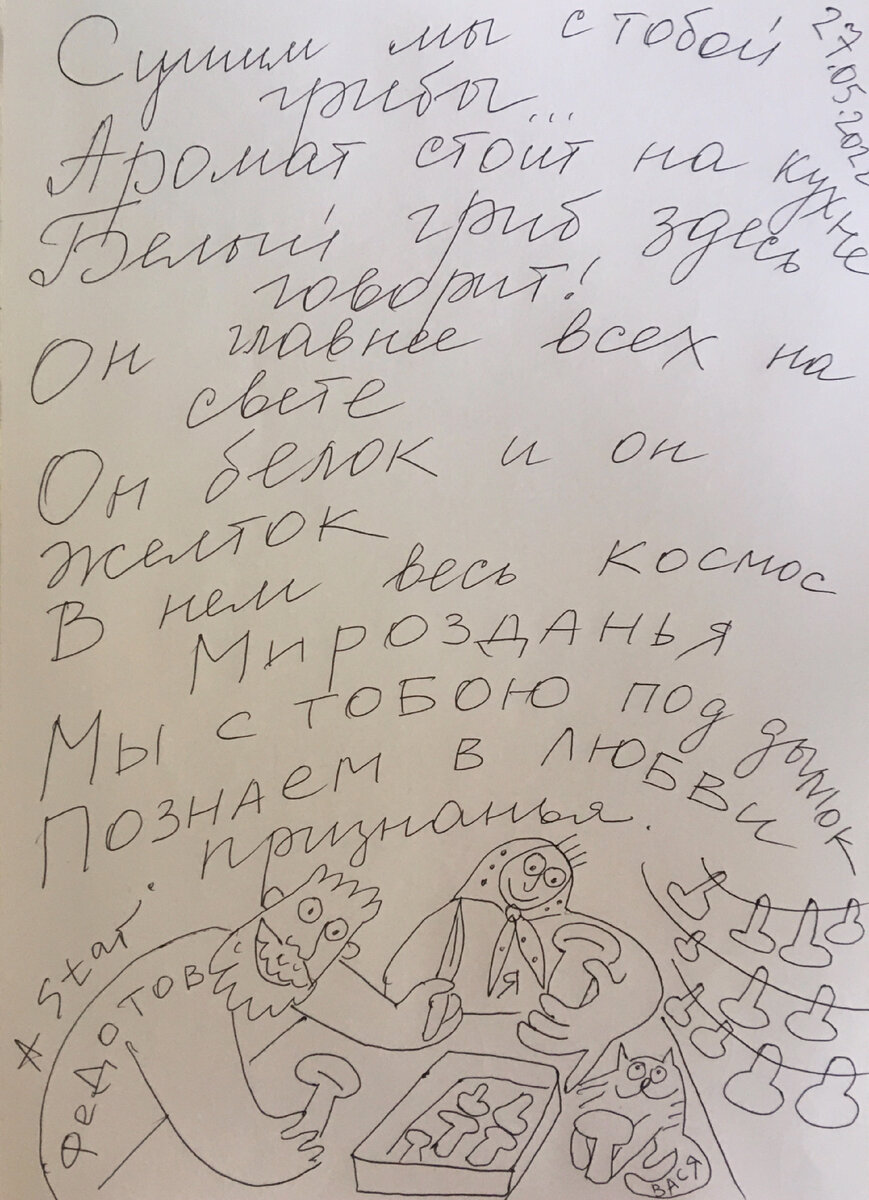 Сушим мы с тобой
грибы...
Аромат стоит на кухне
Белый гриб здесь
говорит!
Он главнее всех на
свете
Он белок и он
желток
В нем весь космос
Мирозданья
Мы с тобою под дымок
Познаем в любви
признанья.
27.05.2022
* Star.
ФЕДОТОВ
Я
ВАСЯ